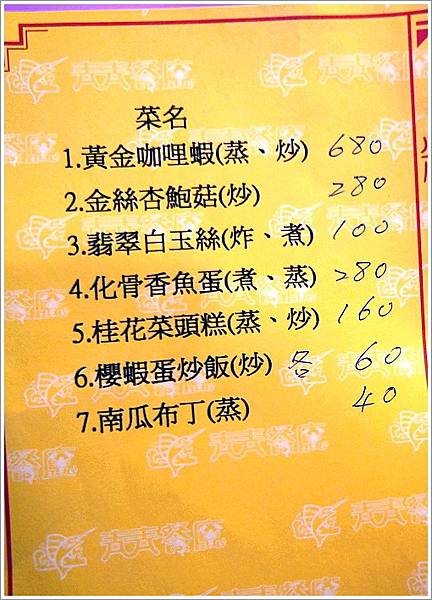 菜名
1.黃金咖哩蝦(蒸、炒) 680
2.金絲杏鮑菇(炒) 280
3.翡翠白玉絲(炸、煮) 100
4.化骨香魚蛋(煮、蒸) 280
5.桂花菜頭糕(蒸、炒) 160
6.櫻蝦蛋炒飯(炒) 各 60
7.南瓜布丁(蒸) 40